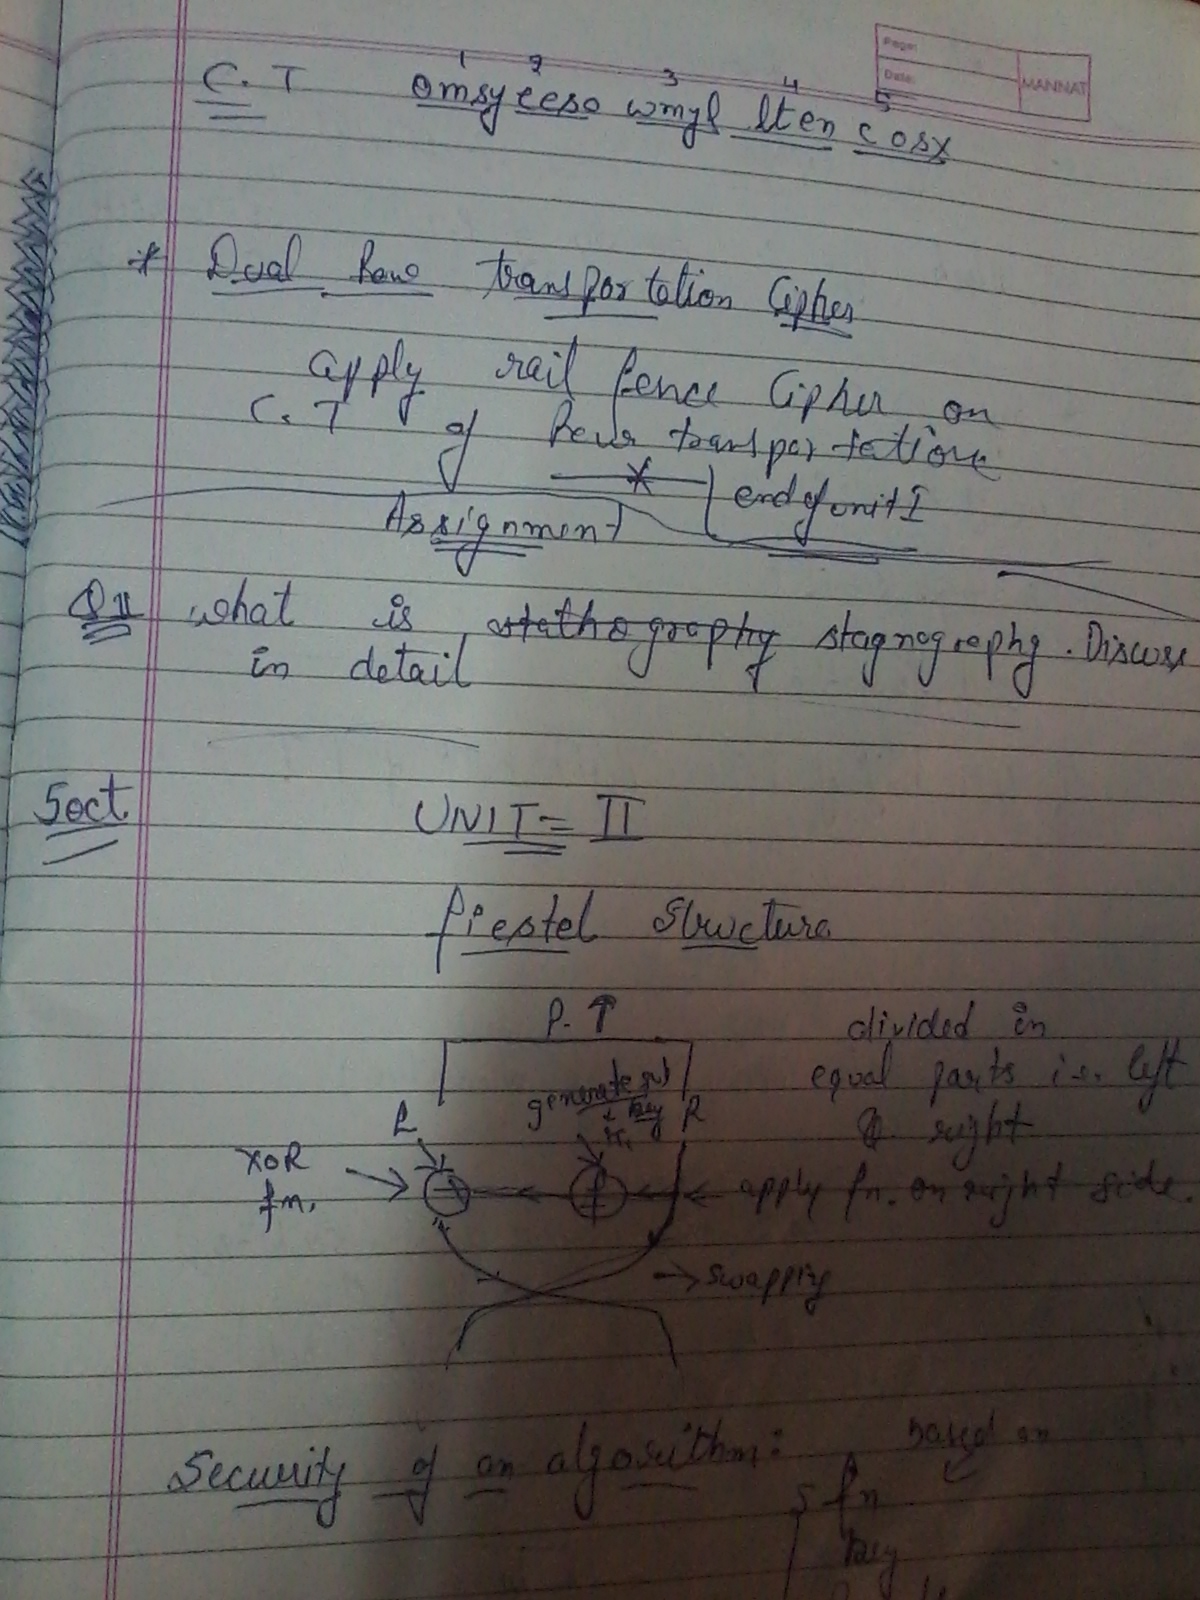 Page:
Date:
MANNAT
1 2 3 4 5
C.T omsy eeso wmyl lten cosx
* Dual Row transportation Cipher
apply rail fence Cipher on
C.T of Row transportation
end of unit I
Assignment
Q1 what is stagnography. Discuss
in detail
5 oct
UNIT = II
fiestel Structure
P.T
divided in
equal parts i.e. left
& right
generate sub
key
L R
XOR
fn.
f
apply fn. on right side.
→ swapping
Security of an algorithm:
based on
fn
key